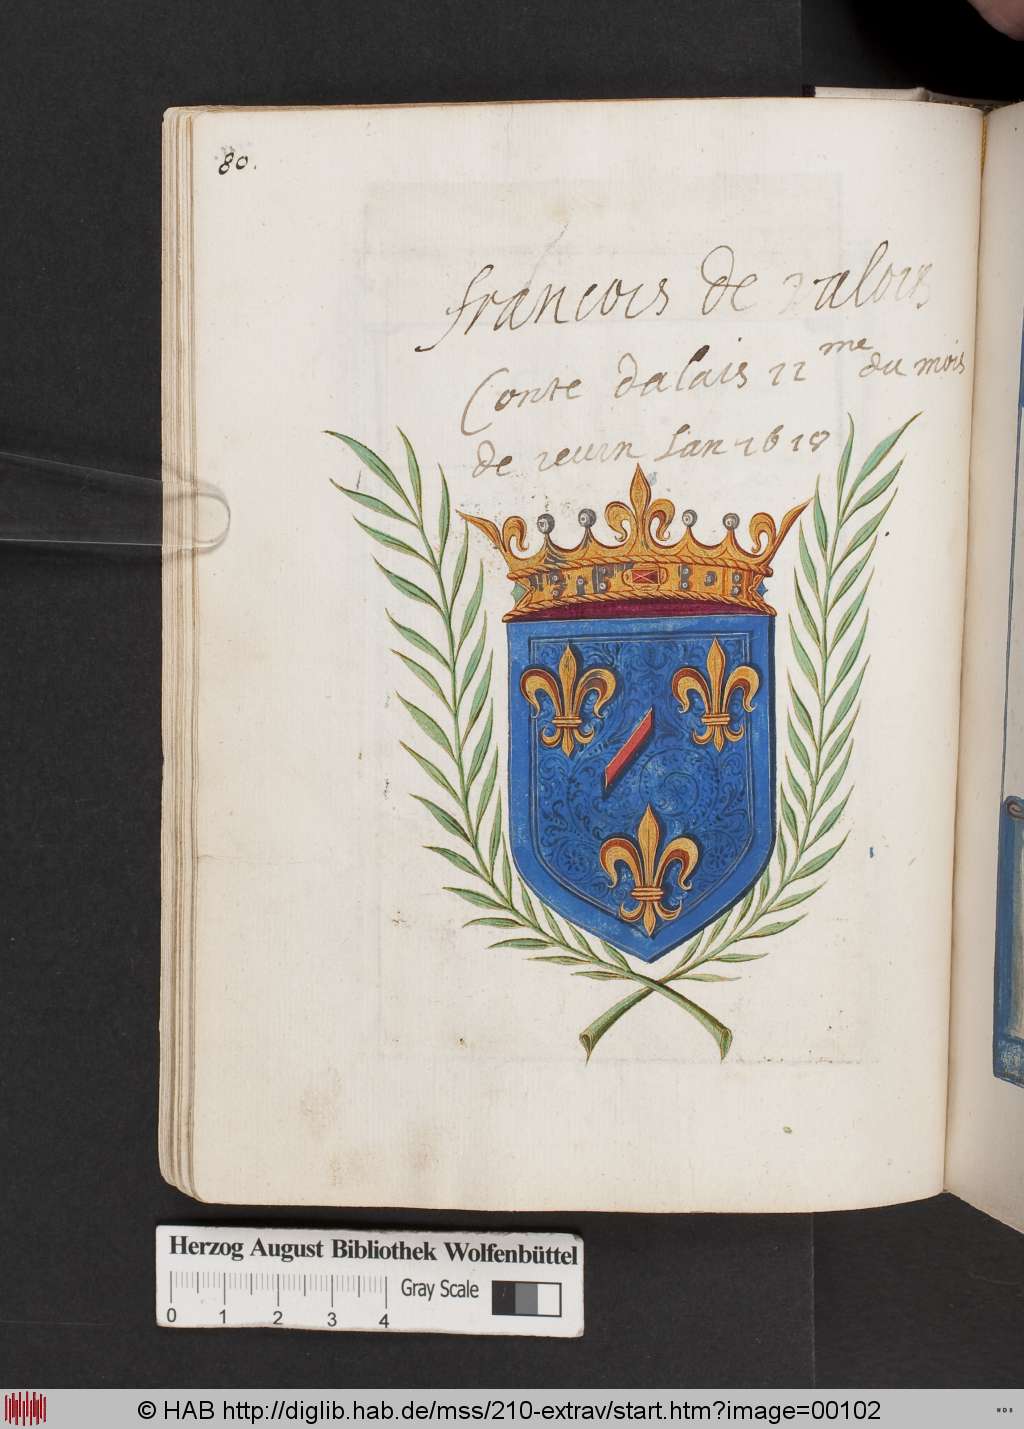 80.
francois de valois
Conte dalais 11me du mois
de ieuin lan 1618
Herzog August Bibliothek Wolfenbüttel
0 1 2 3 4 Gray Scale
© HAB http://diglib.hab.de/mss/210-extrav/start.htm?image=00102